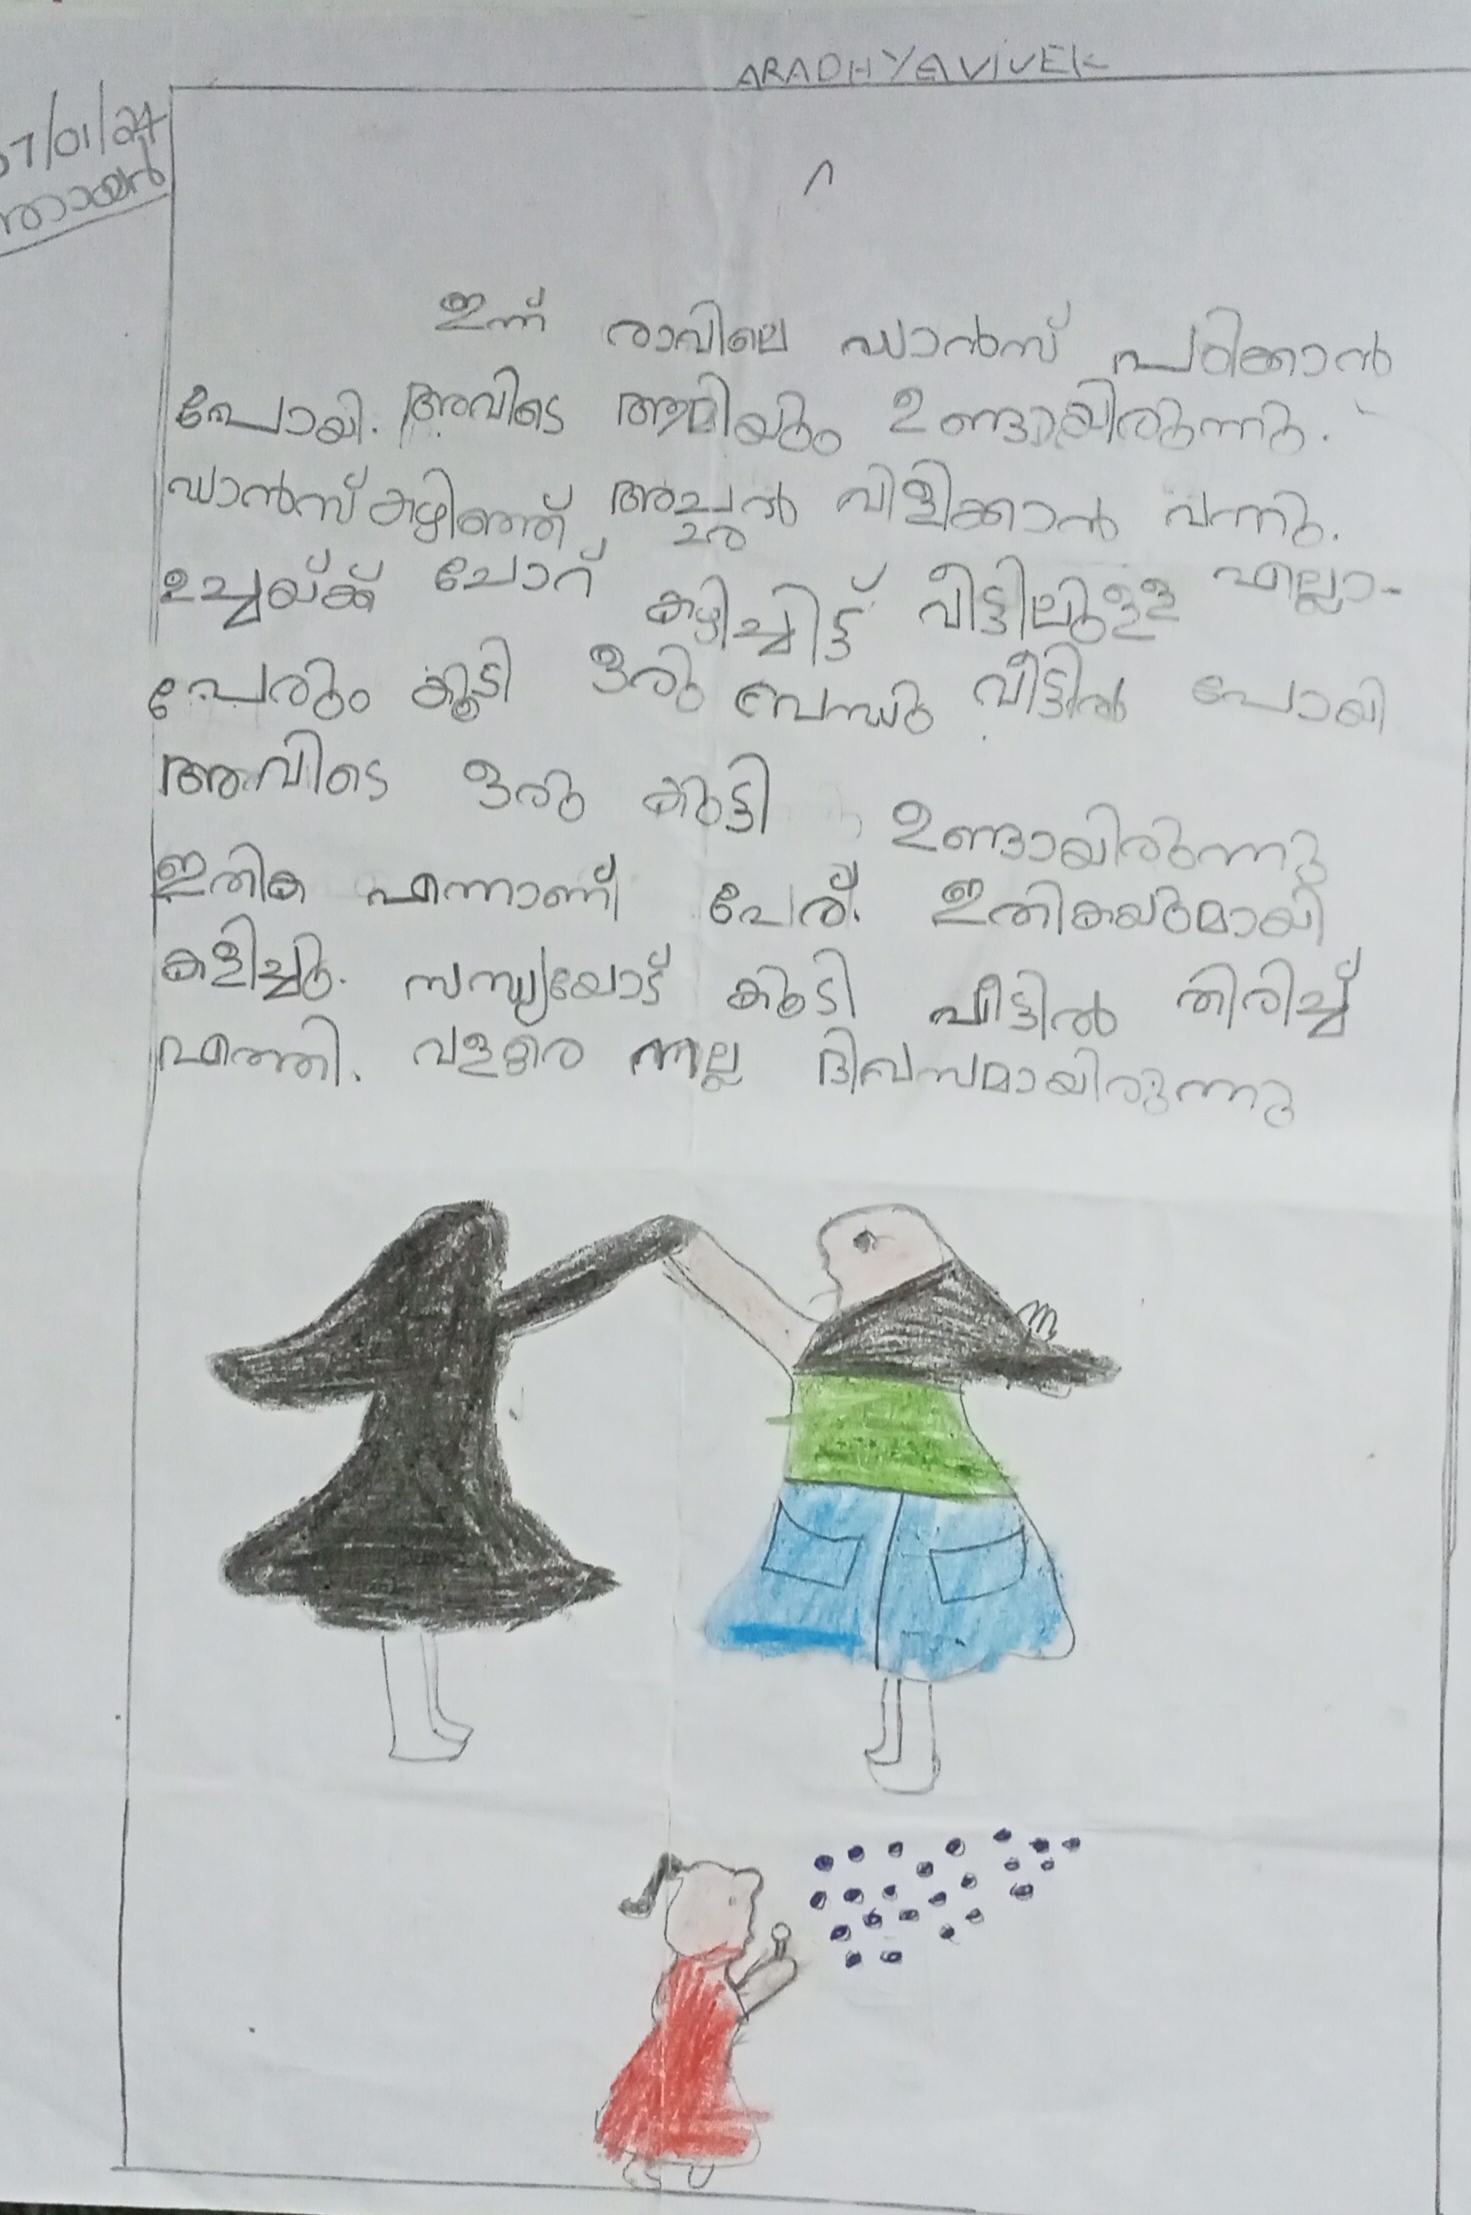 ARADHYA VIVEK
07/01/24
ഞായർ
ഇന്ന് രാവിലെ ഡാൻസ് പഠിക്കാൻ
പോയി. അവിടെ ആമിയും ഉണ്ടായിരുന്നു.
ഡാൻസ് കഴിഞ്ഞ് അച്ഛൻ വിളിക്കാൻ വന്നു.
ഉച്ചയ്ക്ക് ചോറ് കഴിച്ചിട്ട് വീട്ടിലുള്ള എല്ലാ-
പേരും കൂടി ഒരു ബന്ധു വീട്ടിൽ പോയി
അവിടെ ഒരു കുട്ടി ഉണ്ടായിരുന്നു
ഇതിക എന്നാണ് പേര്. ഇതികയുമായി
കളിച്ചു. സന്ധ്യയോട് കൂടി വീട്ടിൽ തിരിച്ച്
എത്തി. വളരെ നല്ല ദിവസമായിരുന്നു